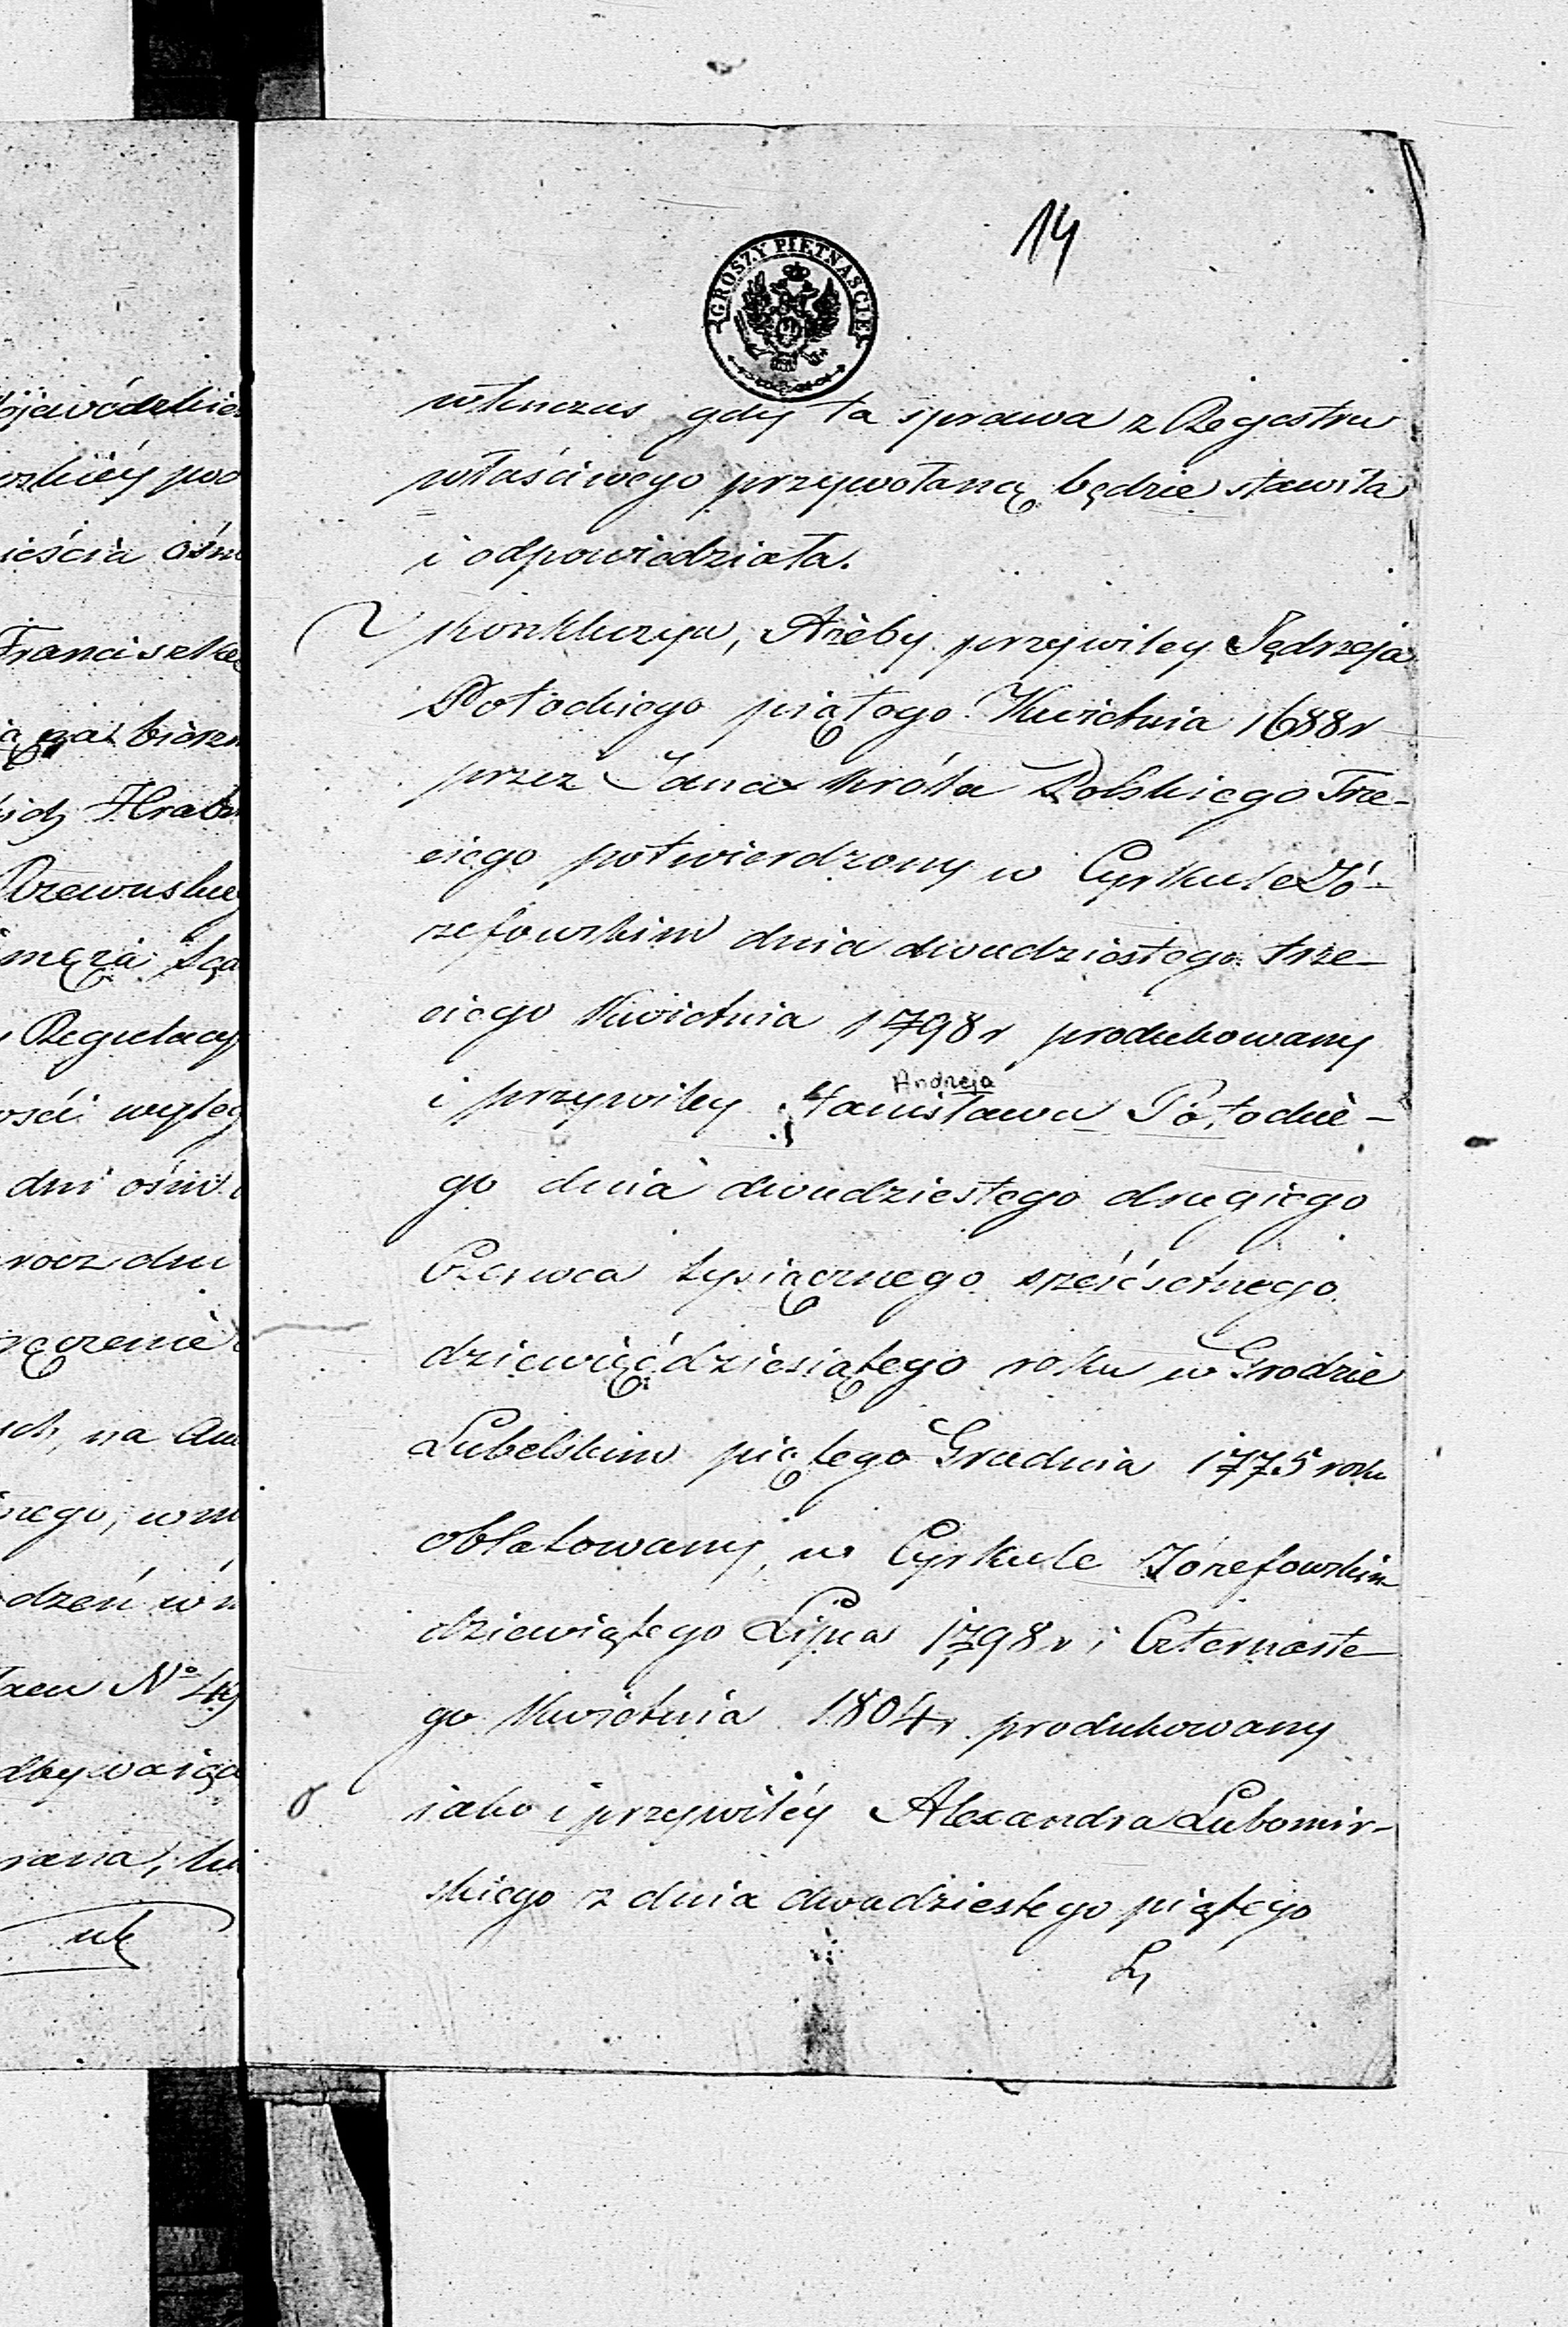 14
GROSZY PIĘTNAŚCIE
wtenczas gdy ta sprawa z Regestru
właściwego przywołaną będzie stawiła
i odpowiedziała.
konkluzya, Ażeby przywiley Jędrzeja
Potockiego piątego Kwietnia 1688 r
przez Jana Króla Polskiego Trze-
ciego potwierdzony w Cyrkule Jó-
zefowskim dnia dwudziestego trze-
ciego Kwietnia 1798 r produkowany
Andrzeja
i przywiley Stanisława Potockie-
go dnia dwudziestego drugiego
Czerwca tysiącznego sześćsetnego
dziewięćdziesiątego roku w Grodzie
Lubelskim piątego Grudnia 1775 roku
oblatowany, w Cyrkule Józefowskim
dziewiątego Lipca 1798 r i Czternaste-
go Kwietnia 1804 r produkowany
iako i przywiléy Alexandra Lubomir-
skiego z dnia dwudziestego piątego
ojewódzkie
ieścia ośm
Franciszka
Hrab
Rzewuski
męża
Regulacy
ości wyłe
dni ośm
dni
na
nego, w
dzeń w
N° 49
dbywaią